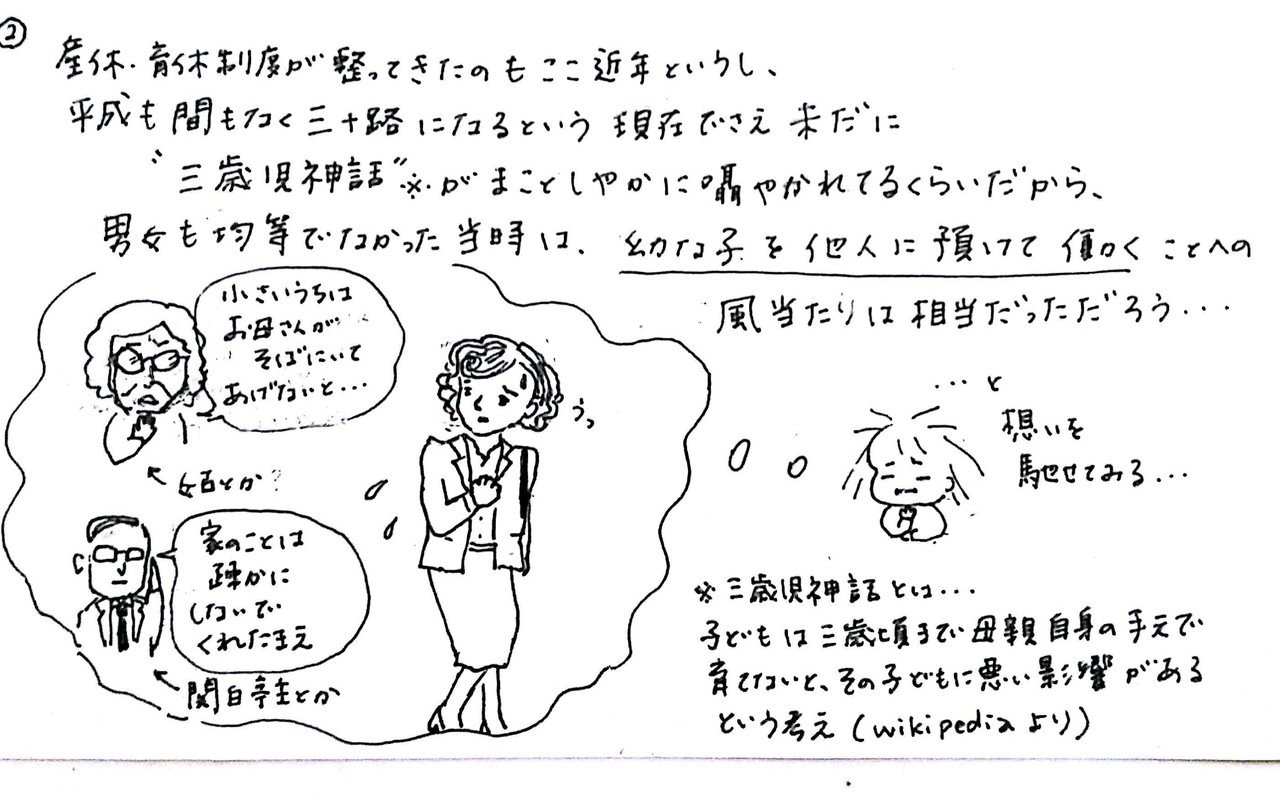 ②
産休・育休制度が整ってきたのもここ近年というし、
平成も間もなく三十路になるという現在でさえ未だに
"三歳児神話"※がまことしやかに囁やかれてるくらいだから、
男女も均等でなかった当時は、幼な子を他人に預けて働くことへの
風当たりは相当だっただろう...
小さいうちは
お母さんが
そばにいて
あげないと...
←姑とか?
家のことは
疎かに
しないで
くれたまえ
←関白亭主とか
うっ
...と
想いを
馳せてみる...
※三歳児神話とは...
子どもは三歳頃まで母親自身の手元で
育てないと、その子どもに悪い影響がある
という考え(wikipediaより)